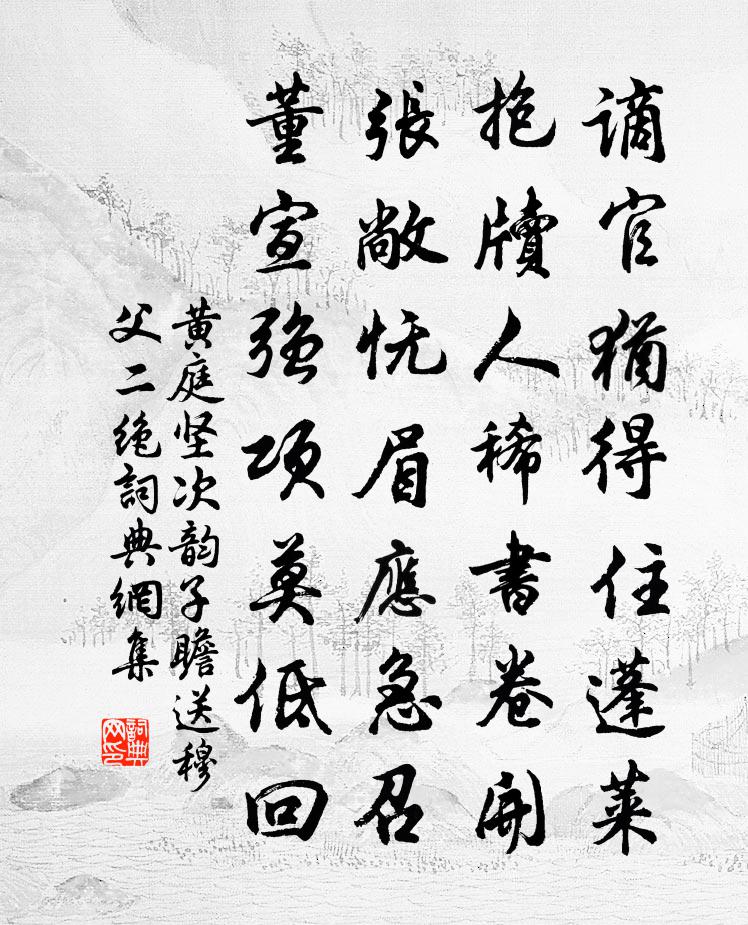 謫官猶得住蓬萊
抱牘人稀書卷開
張敞怃眉應急召
董宣強項莫低回
黃庭坚次韵子瞻送穆
父二绝詞典網集
詞典
网印